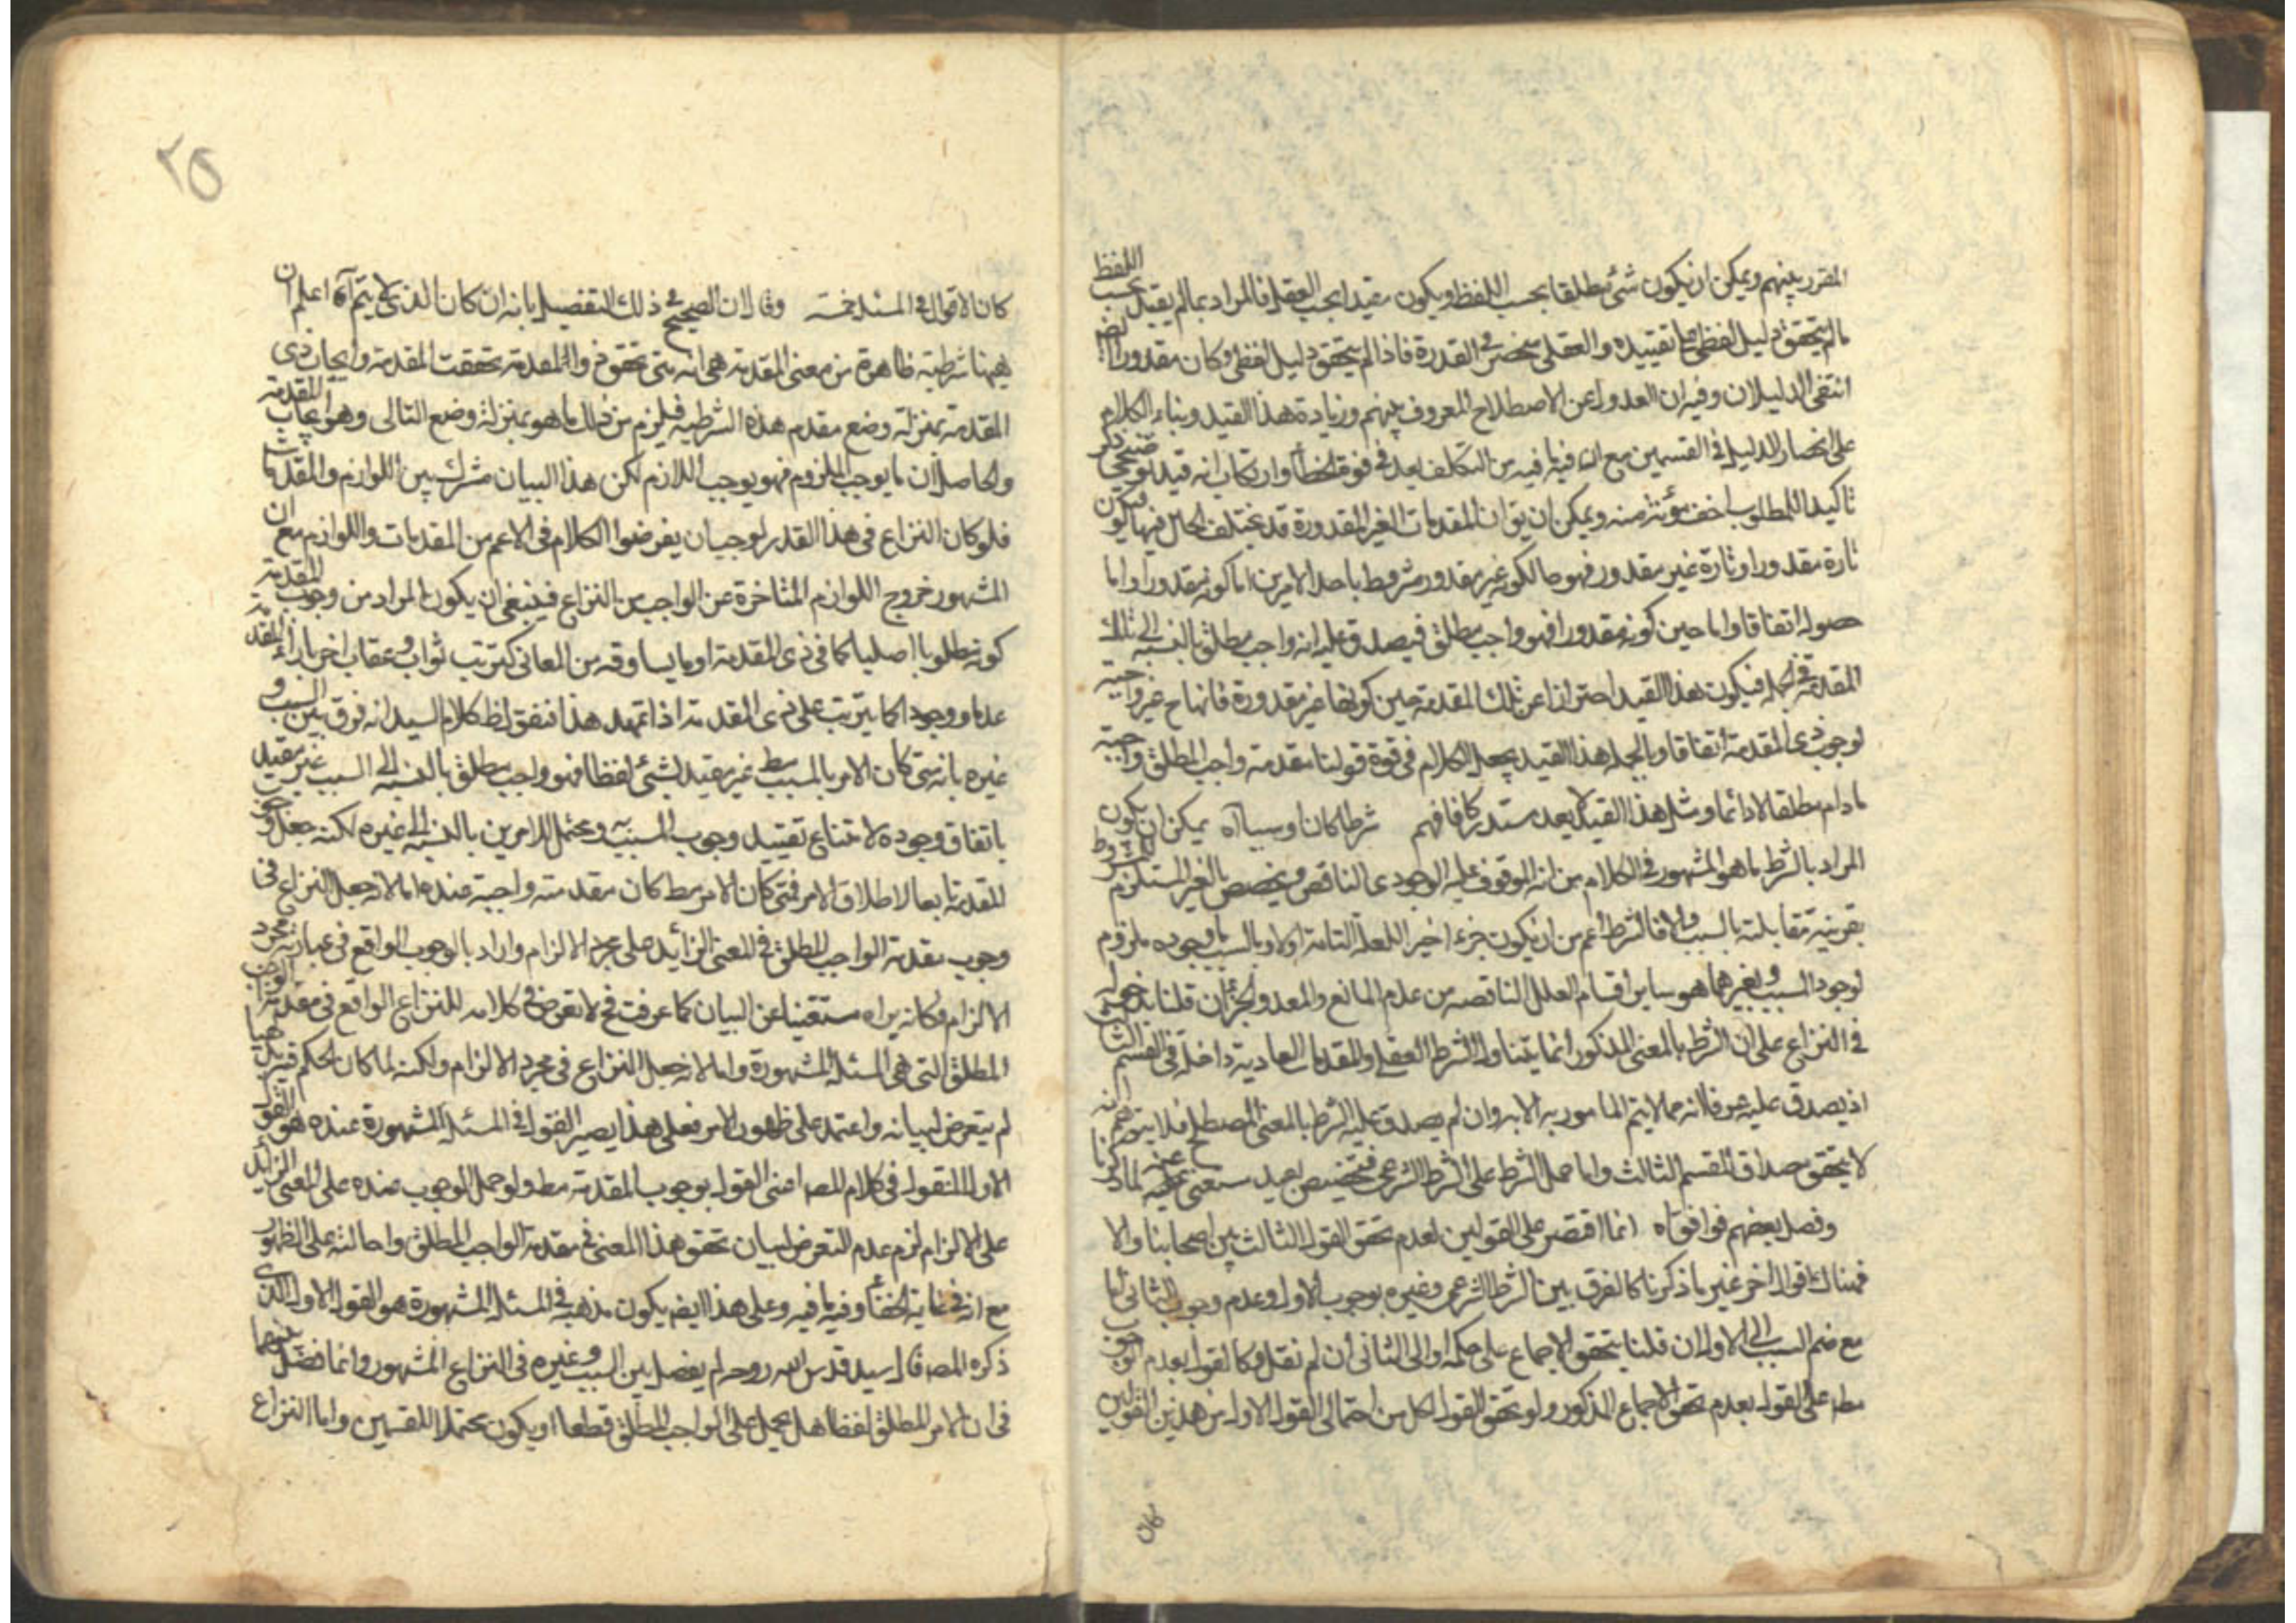 المقرر بينهم ويمكن ان يكون شئ مطلقا بحسب اللفظ ويكون مقيدا بحسب العقل فالمراد بما لم يقيد بحسب اللفظ
ما لم يتحقق دليل لفظي على تقييده والعقلي منحصر في القدرة فاذا لم يتحقق دليل لفظي وكان مقدورا
انتفى الدليلان وفيه ان العدول عن الاصطلاح المعروف بينهم وزيادة هذا القيد وبناء الكلام
على انحصار الدليل في القسمين مع ان فيه ما فيه من التكلف بعد وارتكاب انه قيد توضيحي ذكر
تاكيدا للمطلوب اخف مؤنة منه ويمكن ان يق ان المقدمات الغير المقدورة قد يختلف الحال فيها فيكون
تارة مقدورا وتارة غير مقدور فهو حالكونه غير مقدور مشروط باحد الامرين اما كونه مقدورا واما
حصوله اتفاقا واما حين كونه مقدورا فهو واجب مطلق فيصدق عليه انه واجب مطلق بالنسبة الى تلك
المقدمة في الجملة فيكون هذا القيد احترازا عن تلك المقدمة حين كونها غير مقدورة فانها ح غير واجبة
لوجوب ذى المقدمة اتفاقا وبالجملة هذا القيد يجعل الكلام في قوة قولنا مقدمة واجب المطلق واجبة
ما دام مطلقا لا دائما ومثل هذا القيد لا يعد مستدركا فافهم شرطا كان او سببا آه يمكن ان يكون
المراد بالشرط ما هو المشهور في الكلام من انه الموقوف عليه الوجودى الناقص ويخصص بالغير المستلزم للمشروط
بقرينة مقابلته بالسبب والا فالشرط اعم من ان يكون جزء اخير للعلة التامة اولا وبالسبب ما وجوده ملزوم
لوجود المسبب وبغيرهما هو ساير اقسام العلل الناقصه من عدم المانع والمعد والجزء ان قلنا بدخوله
في النزاع على ان الشرط بالمعنى المذكور انما يتناول الشرط العقلي والمقدمات العادية داخلة في القسم الثالث
اذ يصدق عليه عرفا انه مما لا يتم المامور به الا به وان لم يصدق عليه الشرط بالمعنى المصطلح فلا يتوهم انه
لا يتحقق مصداق القسم الثالث واما حمل الشرط على الشرط الشرعي فتخصيص بعيد مستغنى عنه لما ذكرنا
وفصل بعضهم فوافق آه انما اقتصر على القولين لعدم تحقق القول الثالث بين اصحابنا والا
فهناك اقوال اخر غير ما ذكرنا كالفرق بين الشرط الشرعي وغيره بوجوب الاول وعدم وجوب الثانى اما
مع ضم السبب الى الاول ان قلنا بتحقق الاجماع على حكمه او الى الثانى ان لم نقل وكالقول بعدم الوجوب
مط على القول بعدم تحقق الاجماع المذكور ولو تحقق القول لكل من احتمالى القول الاول من هذين القولين
٢٥
كان الاقوال في المسئلة خمسة وقال ان الصحيح في ذلك التفصيل بانه ان كان الذى لا يتم آه اعلم ان
ههنا شرطية ظاهرة من معنى المقدمة هى انه متى تحقق ذو المقدمة تحققت المقدمة وايجاب ذى
المقدمة بمنزلة وضع مقدم هذه الشرطية فيلزم من ذلك ما هو بمنزلة وضع التالى وهو ايجاب المقدمة
والحاصل ان ما يوجب الملزوم فهو يوجب اللازم لكن هذا البيان مشترك بين اللوازم والمقدمات
فلو كان النزاع في هذا القدر لوجب ان يفرضوا الكلام في الاعم من المقدمات واللوازم مع ان
المشهور خروج اللوازم المتاخرة عن الواجب من النزاع فينبغى ان يكون المراد من وجوب المقدمة
كونه مطلوبا اصليا كما في ذى المقدمة او ما يساوقه من المعانى كترتب ثواب وعقاب اخر بازاء المقدمة
عدما ووجودا كما يترتب على ذى المقدمة اذا تمهد هذا فنقول ظ كلام السيد انه فرق بين السبب و
غيره بانه متى كان الامر بالمسبب مط غير مقيد بشئ لفظا فهو واجب مطلق بالنسبة الى السبب غير مقيد
باتفاق وجوده لامتناع تقييد وجوب المسبب به ويحتمل الامرين بالنسبة الى غيره لكنه جعل وجوب
المقدمة تابعا لاطلاق الامر فمتى كان الامر مط كان مقدمته واجبة عنده اما لانه جعل النزاع في
وجوب مقدمة الواجب المطلق في المعنى الزائد على مجرد الالزام واراد بالوجوب الواقع في عبارته مجرد
الالزام وكانه يراه مستغنيا عن البيان كما عرفت فح لا تعرض في كلامه للنزاع الواقع في مقدمة الواجب
المطلق التى هى المسئلة المشهورة واما لانه جعل النزاع في مجرد الالزام ولكنه لما كان الحكم فيه بديهيا
لم يتعرض لبيانه واعتمد على ظهور الامر فعلى هذا يصير القول في المسئلة المشهورة عنده هو القول
الاول المنقول في كلام المص اعنى القول بوجوب المقدمة مط ولو حمل الوجوب عنده على المعنى الزايد
على الالزام لزم عدم التعرض لبيان تحقق هذا المعنى في مقدمة الواجب المطلق واحالته على الظهور
مع انه في غاية الخفاء وفيه ما فيه وعلى هذا ايض يكون مذهبه في المسئلة المشهورة هو القول الاول الذى
ذكره المص فالسيد قدس الله روحه لم يفصل بين السبب وغيره في النزاع المشهور وانما فصل بينهما
في ان الامر المطلق لفظا هل يحمل على الواجب المطلق قطعا او يكون محتملا للقسمين واما النزاع